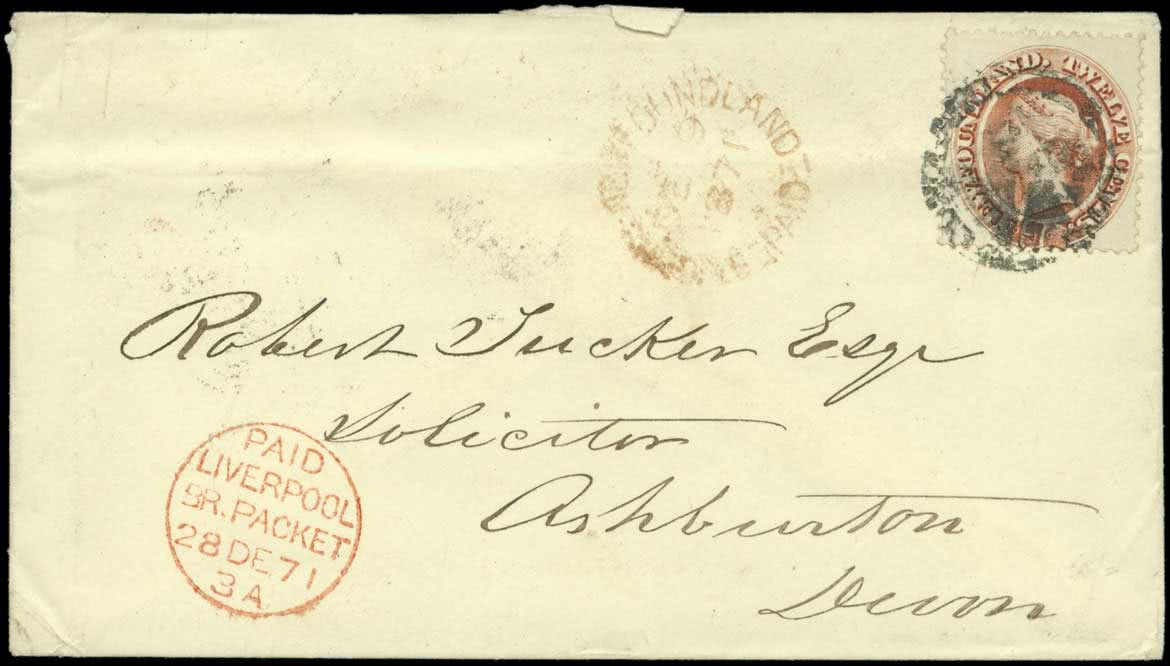 NEWFOUNDLAND. TWELVE CENTS
FOUNDLAND
PAID
1871
Robert Tucker Esqr
Solicitor
Ashburton
Devon
PAID
LIVERPOOL
BR. PACKET
28 DE 71
3A